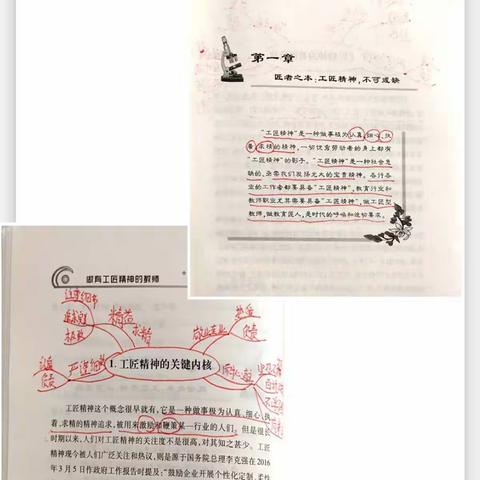 第一章
匠者之本:工匠精神,不可或缺
“工匠精神”是一种做事极为认真、细心、执
着、求精的精神,一切优秀劳动者的身上都有
“工匠精神”的影子。“工匠精神”是一种社会急
缺的、亟需我们发扬光大的宝贵精神。各行各
业的工作者都要具备“工匠精神”,教育行业和
教师职业尤其需要具备“工匠精神”,做工匠型
教师,做教育匠人,是时代的呼唤和迫切要求。
做有工匠精神的教师
注重细节
追求完美
极致
精益
求精
敬业
负责
严谨细
1.工匠精神的关键内核
工匠精神这个概念很早就有,它是一种做事极为认真、细心、执
着、求精的精神追求,被用来激励和鞭策某一行业的人们。但是很长
时期以来,人们对工匠精神的关注度不是很高,对其知之甚少。工匠
精神现今被人们广泛关注和热议,则是源于国务院总理李克强在2016
年3月5日作政府工作报告时提及:“鼓励企业开展个性化定制、柔性